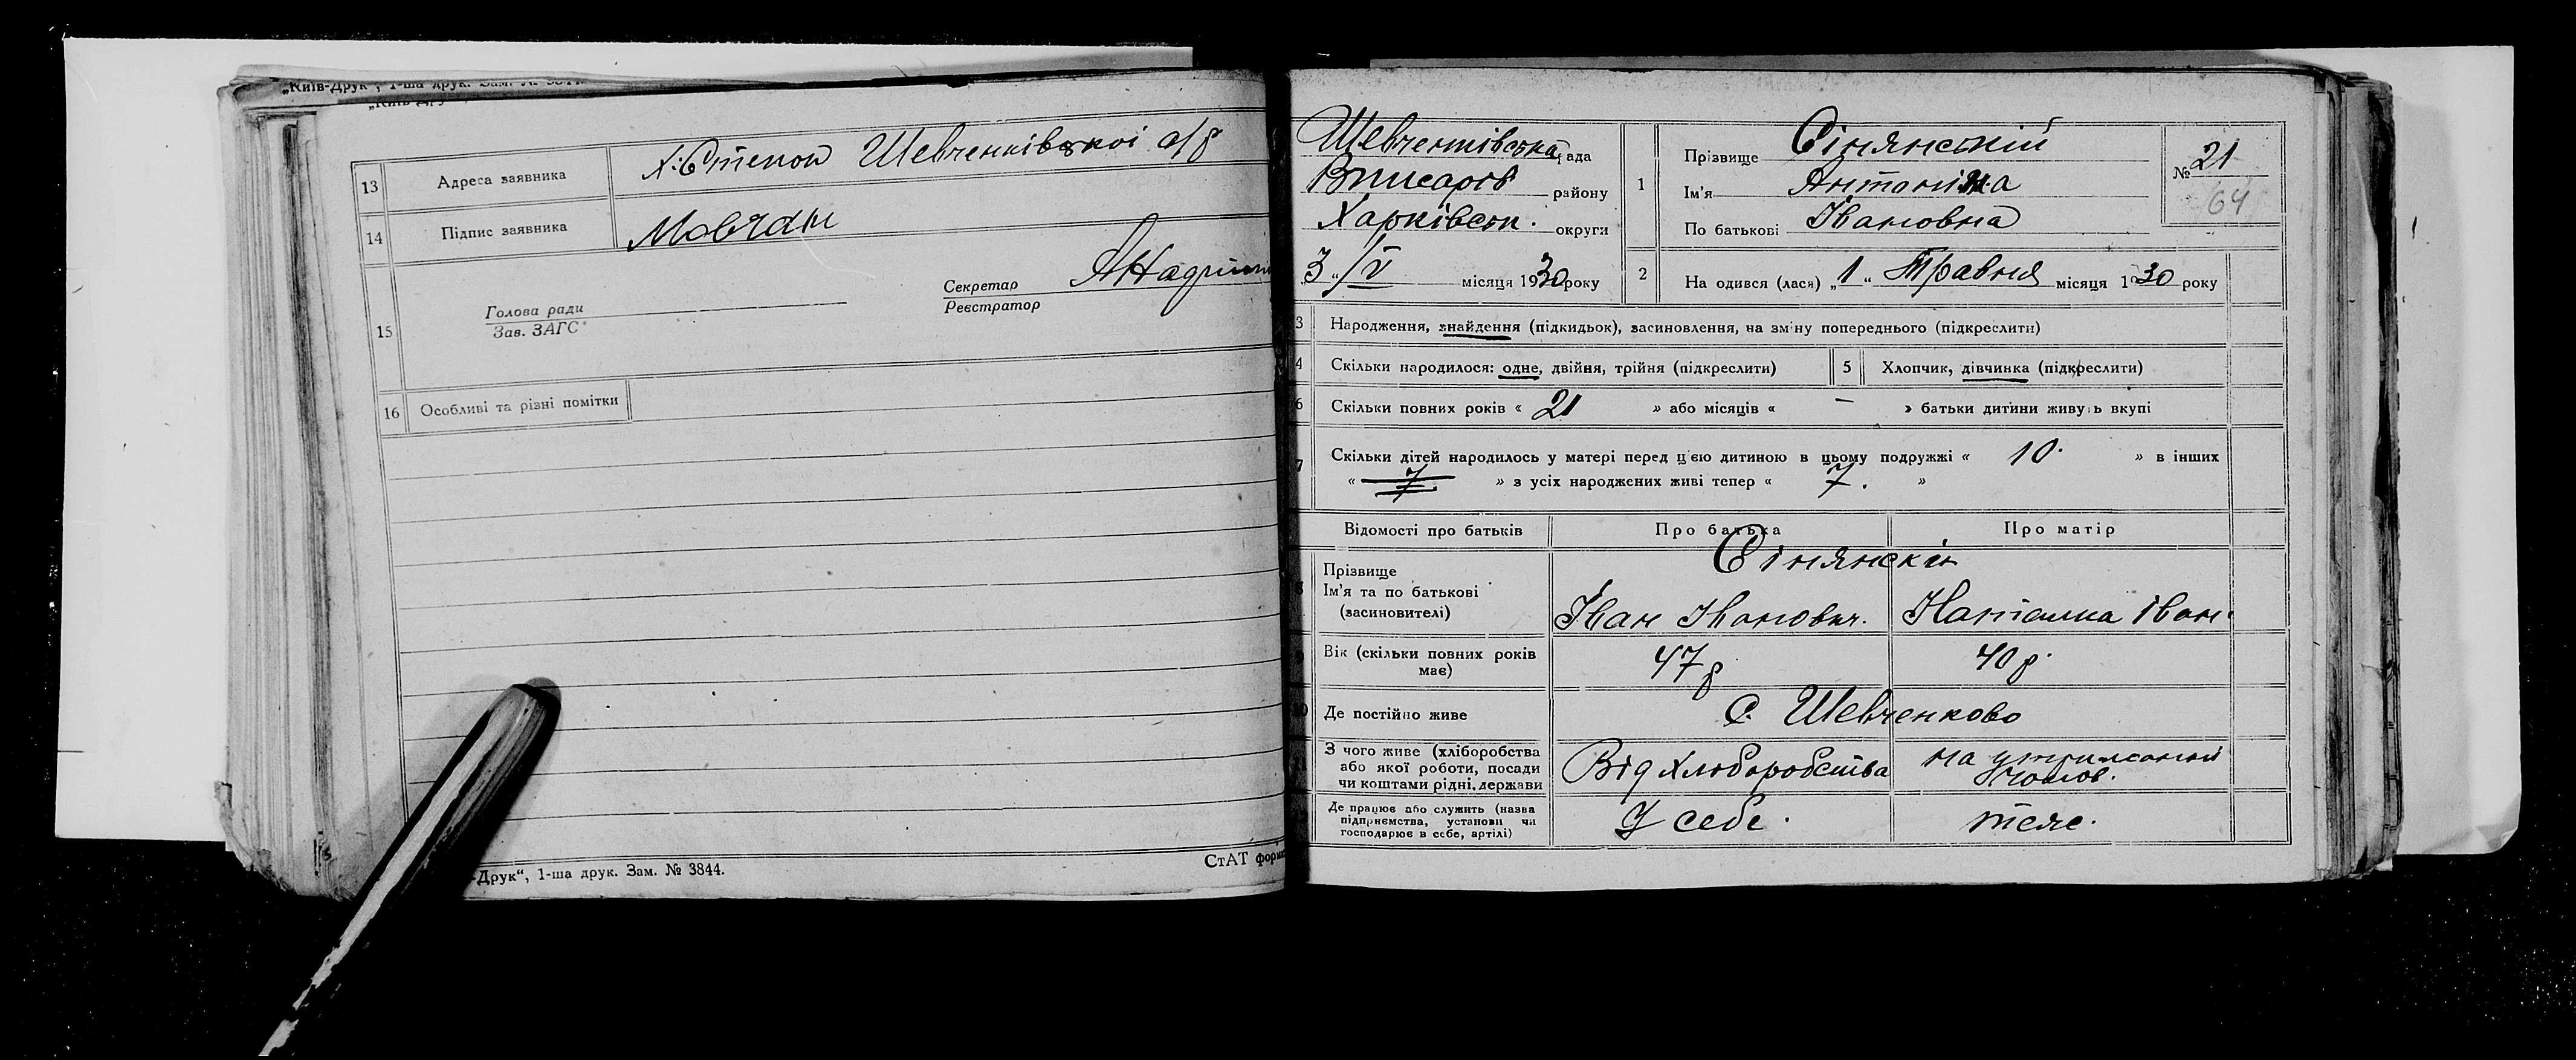 „Київ-Друк“, 1-ша друк. Зам. №
13 Адреса заявника х. Степок Шевченківської с/р
14 Підпис заявника Мовчан
15 Голова ради
Зав. ЗАГС
Секретар
Реєстратор
16 Особливі та різні помітки
-Друк“, 1-ша друк. Зам. № 3844.
СтАТ форма
Шевченківська рада
району
Харківськ. округи
„3“/V місяця 1930 року
1 Прізвище Сінянский
Ім'я Антонина
По батькові Івановна
№ 21
64
2 На одився (лася) „1“ Травня місяця 1930 року
3 Народження, знайдення (підкидьок), засиновлення, на зміну попереднього (підкреслити)
4 Скільки народилося: одне, двійня, трійня (підкреслити)
5 Хлопчик, дівчинка (підкреслити)
6 Скільки повних років « 21 » або місяців « — » батьки дитини живуть вкупі
7 Скільки дітей народилось у матері перед цією дитиною в цьому подружжі « 10. » в інших
« 7 » з усіх народжених живі тепер « 7. »
Відомості про батьків Про батька Про матір
Прізвище
Ім'я та по батькові
(засиновителі)
Сінянскі
Іван Іванович. Наталка Іван.
Вік (скільки повних років має) 47 р 40 р.
Де постійно живе с. Шевченково
З чого живе (хліборобства
або якої роботи, посади
чи коштами рідні, держави
Від хлоборобства на чолов.
Де працює або служить (назва
підприємства, установи чи
господарює в себе, артілі)
У себе. теж.